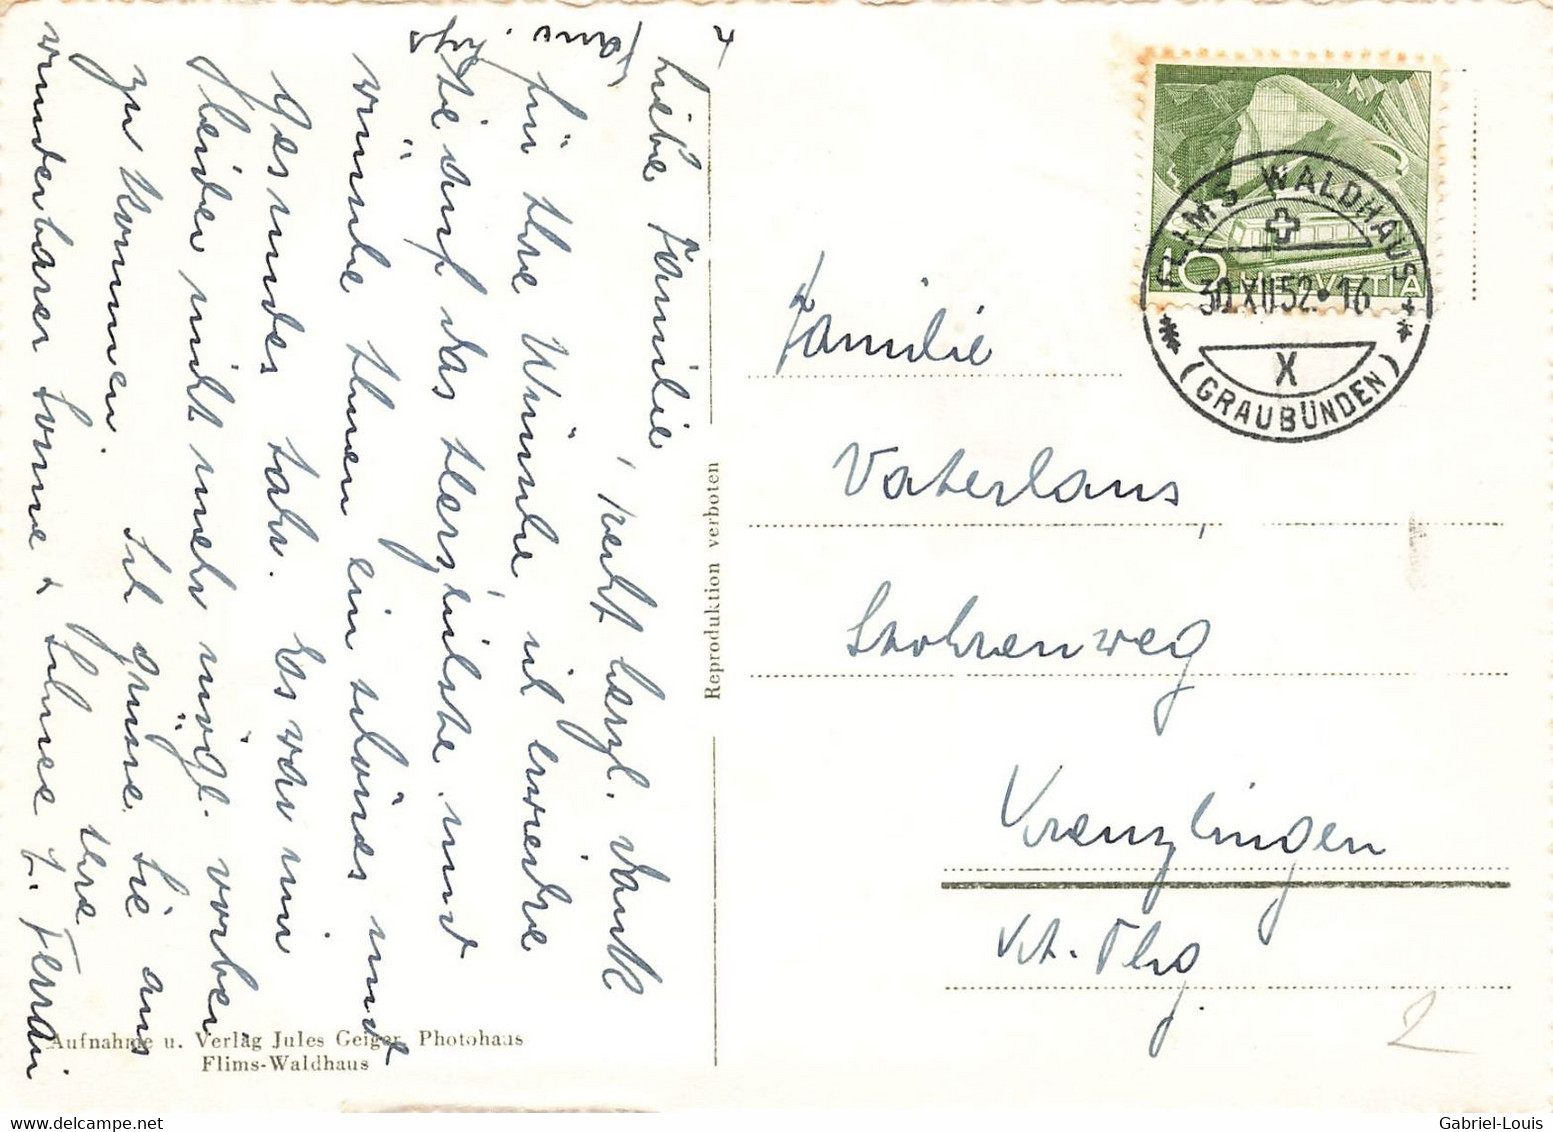 Liebe Familie,
recht herzl. Dank
für Ihre Wünsche, ich erwidere
Sie auf das Herzlichste und
wünsche Ihnen ein schönes und
gesundes Jahr. Es war mir
leider nicht mehr mögl. vorbei
zu kommen. Ich grüsse Sie aus
wunderbarer Sonne + Schnee Ihre
Reproduktion verboten
Aufnahme u. Verlag Jules Geiger, Photohaus
Flims-Waldhaus
FLIMS WALDHAUS
30.XII.52.16
X
(GRAUBÜNDEN)
10 HELVETIA
Familie
Vaterlaus,
Kreuzlingen
Kt. Thg.
2
Gabriel-Louis